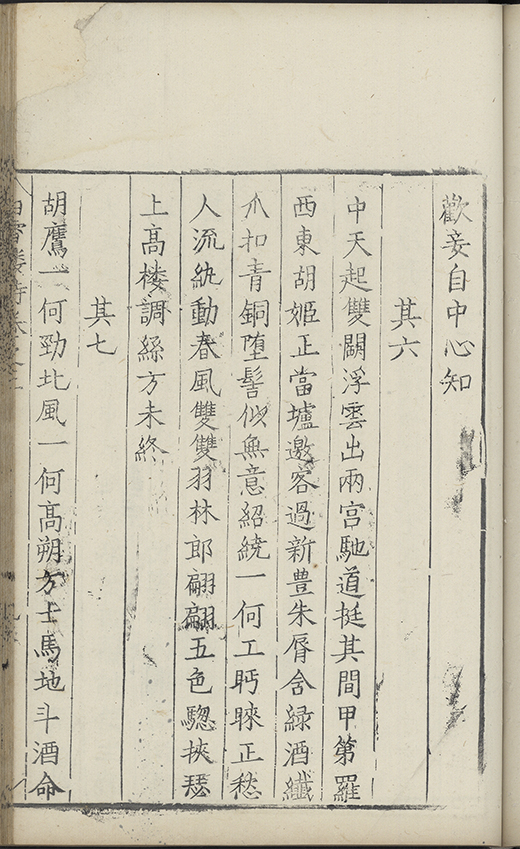 歡妾自中心知
其六
中天起雙闕浮雲出兩宮馳道挺其間甲第羅
西東胡姬正當壚邀客過新豊朱脣含緑酒纖
爪扣青銅堕髻似無意紹繞一何工眄睞正愁
人流紈動春風雙雙羽林郎翩翩五色騘挾瑟
上髙楼調絲方未終
其七
胡鷹一何勁北風一何髙朔方士馬地斗酒命